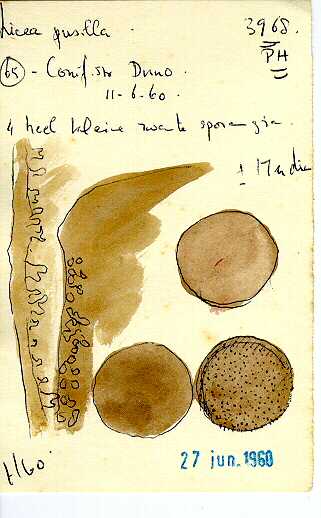 Licea pusilla.
3968.
PH
65 - Conif. str Duno.
11-6-60.
4 heel kleine zwarte sporangia.
1160
27 jun. 1960